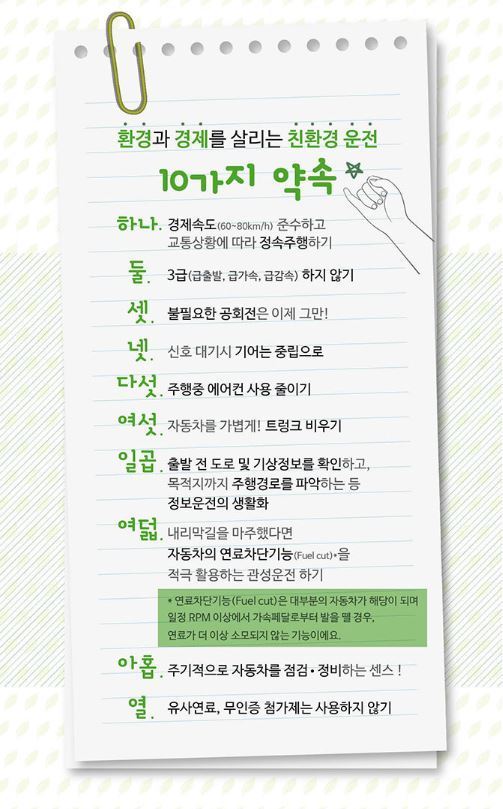 환경과 경제를 살리는 친환경 운전
10가지 약속
하나. 경제속도(60~80km/h) 준수하고
교통상황에 따라 정속주행하기
둘. 3급(급출발, 급가속, 급감속) 하지 않기
셋. 불필요한 공회전은 이제 그만!
넷. 신호 대기시 기어는 중립으로
다섯. 주행중 에어컨 사용 줄이기
여섯. 자동차를 가볍게! 트렁크 비우기
일곱. 출발 전 도로 및 기상정보를 확인하고,
목적지까지 주행경로를 파악하는 등
정보운전의 생활화
여덟. 내리막길을 마주했다면
자동차의 연료차단기능(Fuel cut)*을
적극 활용하는 관성운전 하기
* 연료차단기능(Fuel cut)은 대부분의 자동차가 해당이 되며
일정 RPM 이상에서 가속페달로부터 발을 뗄 경우,
연료가 더 이상 소모되지 않는 기능이에요.
아홉. 주기적으로 자동차를 점검•정비하는 센스 !
열. 유사연료, 무인증 첨가제는 사용하지 않기